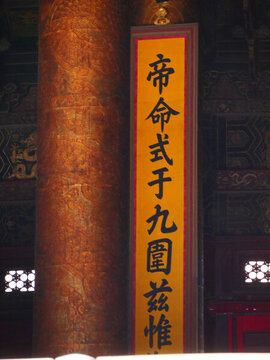 帝命式于九圍茲惟